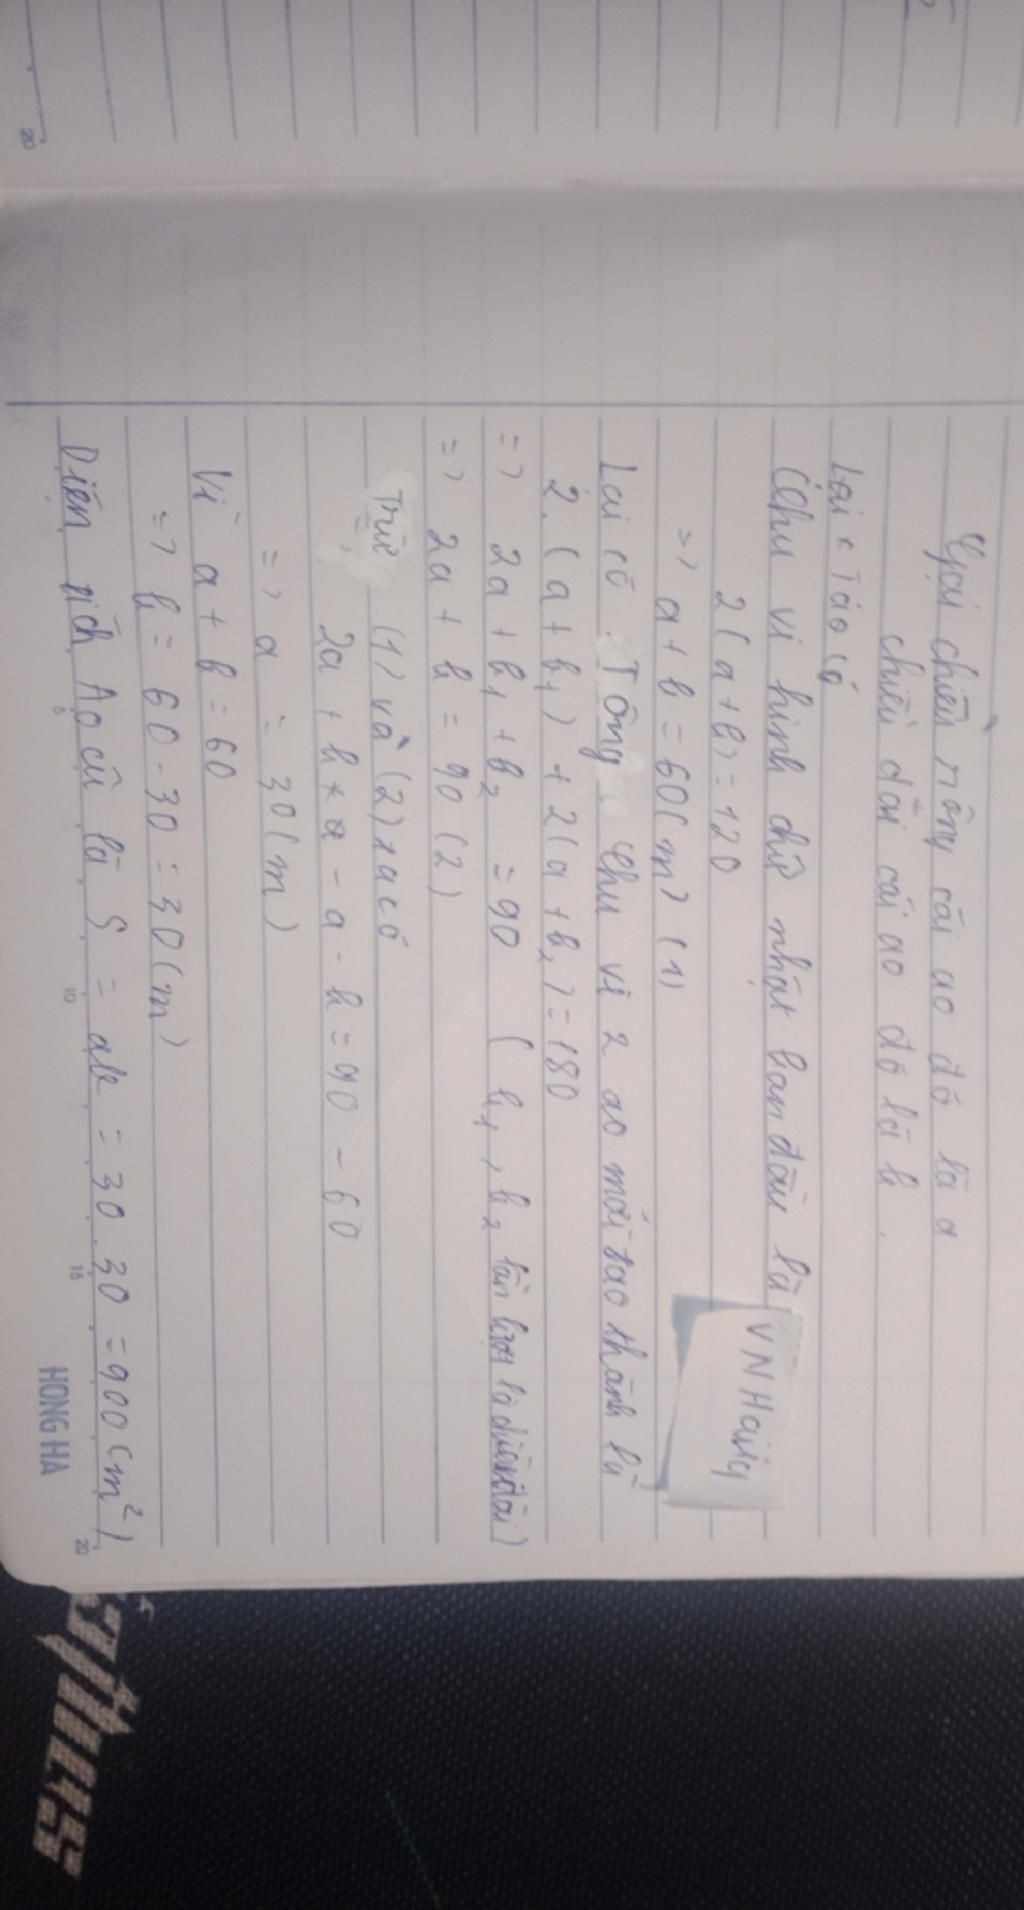 Gọi chiều rộng cái ao đó là a
chiều dài cái ao đó là b.
Lại c Táo có
Chu vi hình chữ nhật ban đầu là
2(a+b)=120
=> a+b=60(m) (1)
VNHaiiy
Lại có Tổng chu vi 2 ao mới tạo thành là
2.(a+b₁)+2(a+b₂)=180
=> 2a+b₁+b₂=90 (b₁,b₂ lần lượt là chiều dài)
=> 2a+b=90 (2)
Trừ (1) và (2) ta có
2a+b - a-b=90-60
=> a=30(m)
Vì a+b=60
=> b=60-30=30(m)
Diện tích Ao cũ là S=ab=30.30=900(m²)
5 10 15 20
HONG HA
20